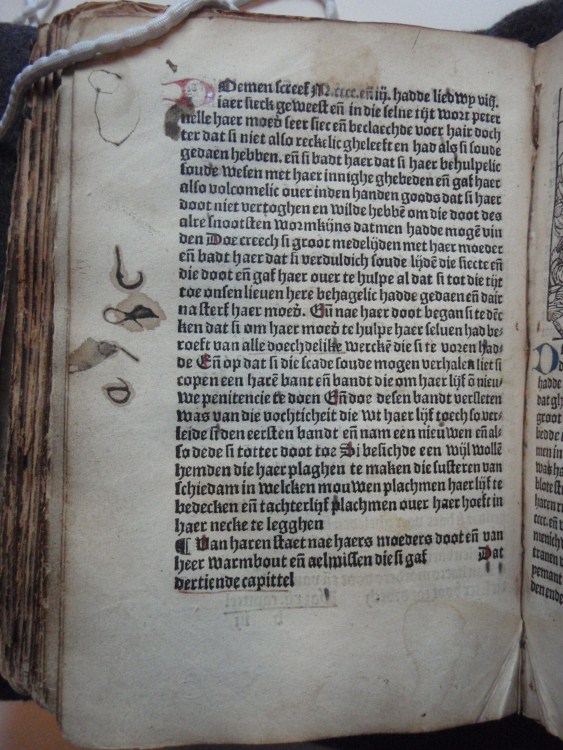 Doemen screef M.cccc.eñ iij. hadde liedwy viij.
iaer sieck geweest eñ in die selue tijt wort peter
nelle haer moed̕ seer siec eñ beclaechde voer hair doch
ter dat si niet also reckelic gheleeft en had als si soude
gedaen hebben. eñ si badt haer dat si haer behulpelic
soude wesen met haer innighe ghebeden eñ gaf haer
also volcomelic ouer inden handen goods dat si haer
doot niet vertoghen en wilde hebbē om die doot des
alre snootsten wormkijns datmen hadde mogē vin
den Doe creech si groot medelijden met haer moeder
eñ badt haer dat si verduldich soude lijdē die siecte eñ
die doot eñ gaf haer ouer te hulpe al dat si tot die tijt
toe onsen lieuen here behagelic hadde gedaen eñ dair
na sterf haer moed̕. Eñ nae haer doot began si te dēc
ken dat si om haer moed̕ te hulpe haer seluen had be-
roeft van alle doechdelike werckē die si te voren had-
de Eñ op dat si die scade soude mogen verhalen liet si
copen een harē bant eñ bandt die om haer lijf ō nieu-
we penitencie te doen Eñ doe desen bandt versleten
was van die vochticheit die wt haer lijf toech so ver-
leide si den eersten bandt eñ nam een nieuwen eñ al-
so dede si totter doot toe Si besichde een wijl wollē
hemden die haer plaghen te maken die susteren van
schiedam in welcken mouwen plachmen haer lijf te
bedecken eñ tachterlijf plachmen ouer haer hoeft in
haer necke te legghen
¶ Van haren staet nae haers moeders doot eñ van
heer warmbout eñ aelwissen die si gaf Dat
dertiende capittel